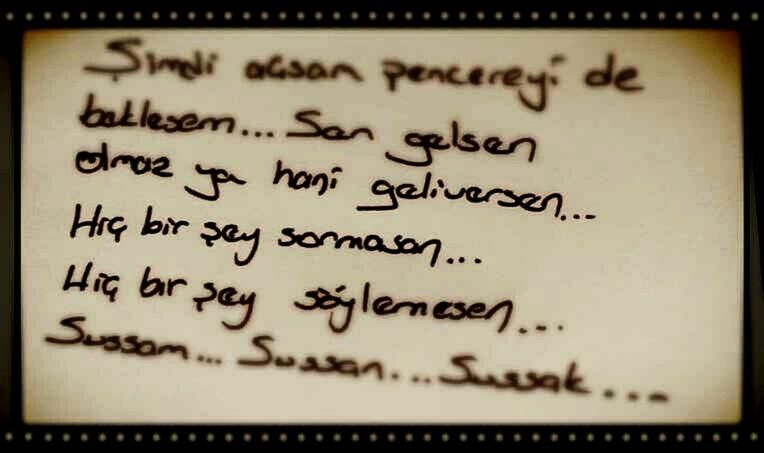 Şimdi açsam pencereyi de
beklesem... Sen gelsen
olmaz ya hani geliversen...
Hiç bir şey sormasan...
Hiç bir şey söylemesen...
Sussam... Sussan... Sussak...